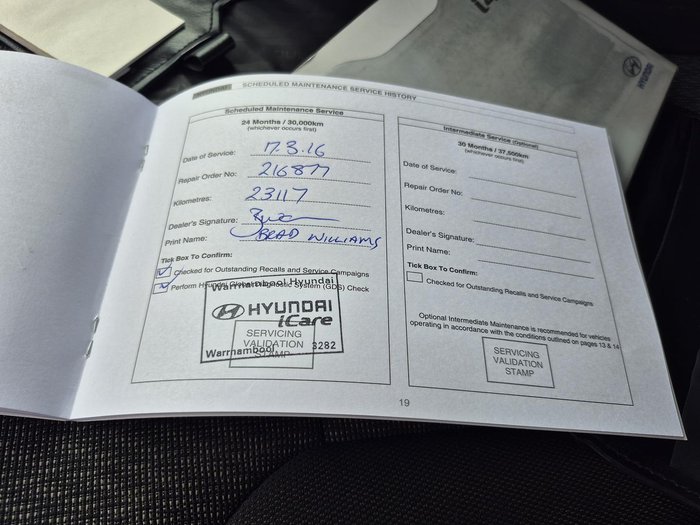 HYUNDAI
HYUNDAI SCHEDULED MAINTENANCE SERVICE HISTORY
Scheduled Maintenance Service
24 Months / 30,000km
(whichever occurs first)
Date of Service: 17.3.16
Repair Order No: 216877
Kilometres: 23117
Dealer's Signature:
Print Name: BRAD WILLIAMS
Tick Box To Confirm:
Checked for Outstanding Recalls and Service Campaigns
Perform Hyundai Global Diagnostic System (GDS) Check
Warrnambool Hyundai
HYUNDAI
iCare
SERVICING
VALIDATION
STAMP
Warrnambool 3282
Intermediate Service (optional)
30 Months / 37,500km
(whichever occurs first)
Date of Service:
Repair Order No:
Kilometres:
Dealer's Signature:
Print Name:
Tick Box To Confirm:
Checked for Outstanding Recalls and Service Campaigns
Optional Intermediate Maintenance is recommended for vehicles
operating in accordance with the conditions outlined on pages 13 & 14
SERVICING
VALIDATION
STAMP
19